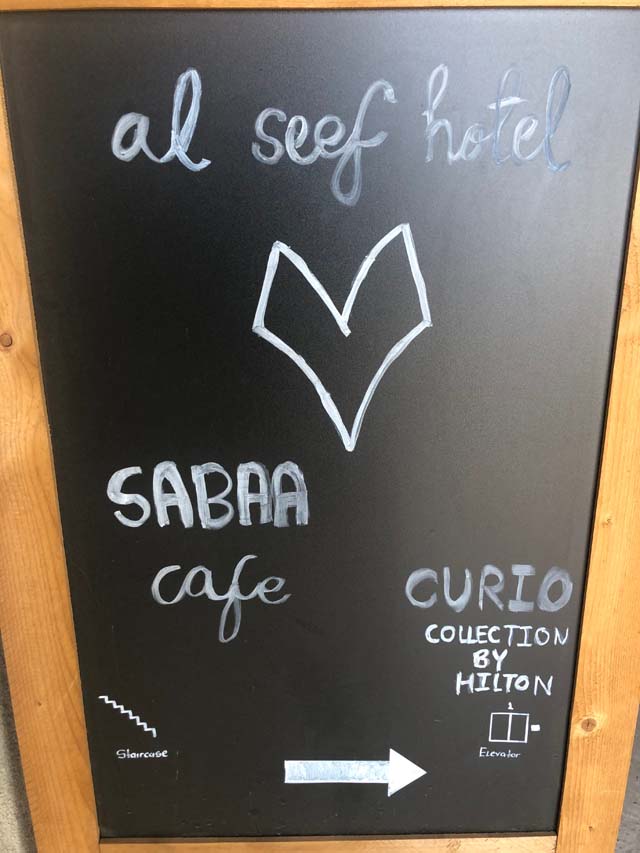 al seef hotel
SABAA
cafe
CURIO
COLLECTION
BY
HILTON
1
Staircase
Elevator